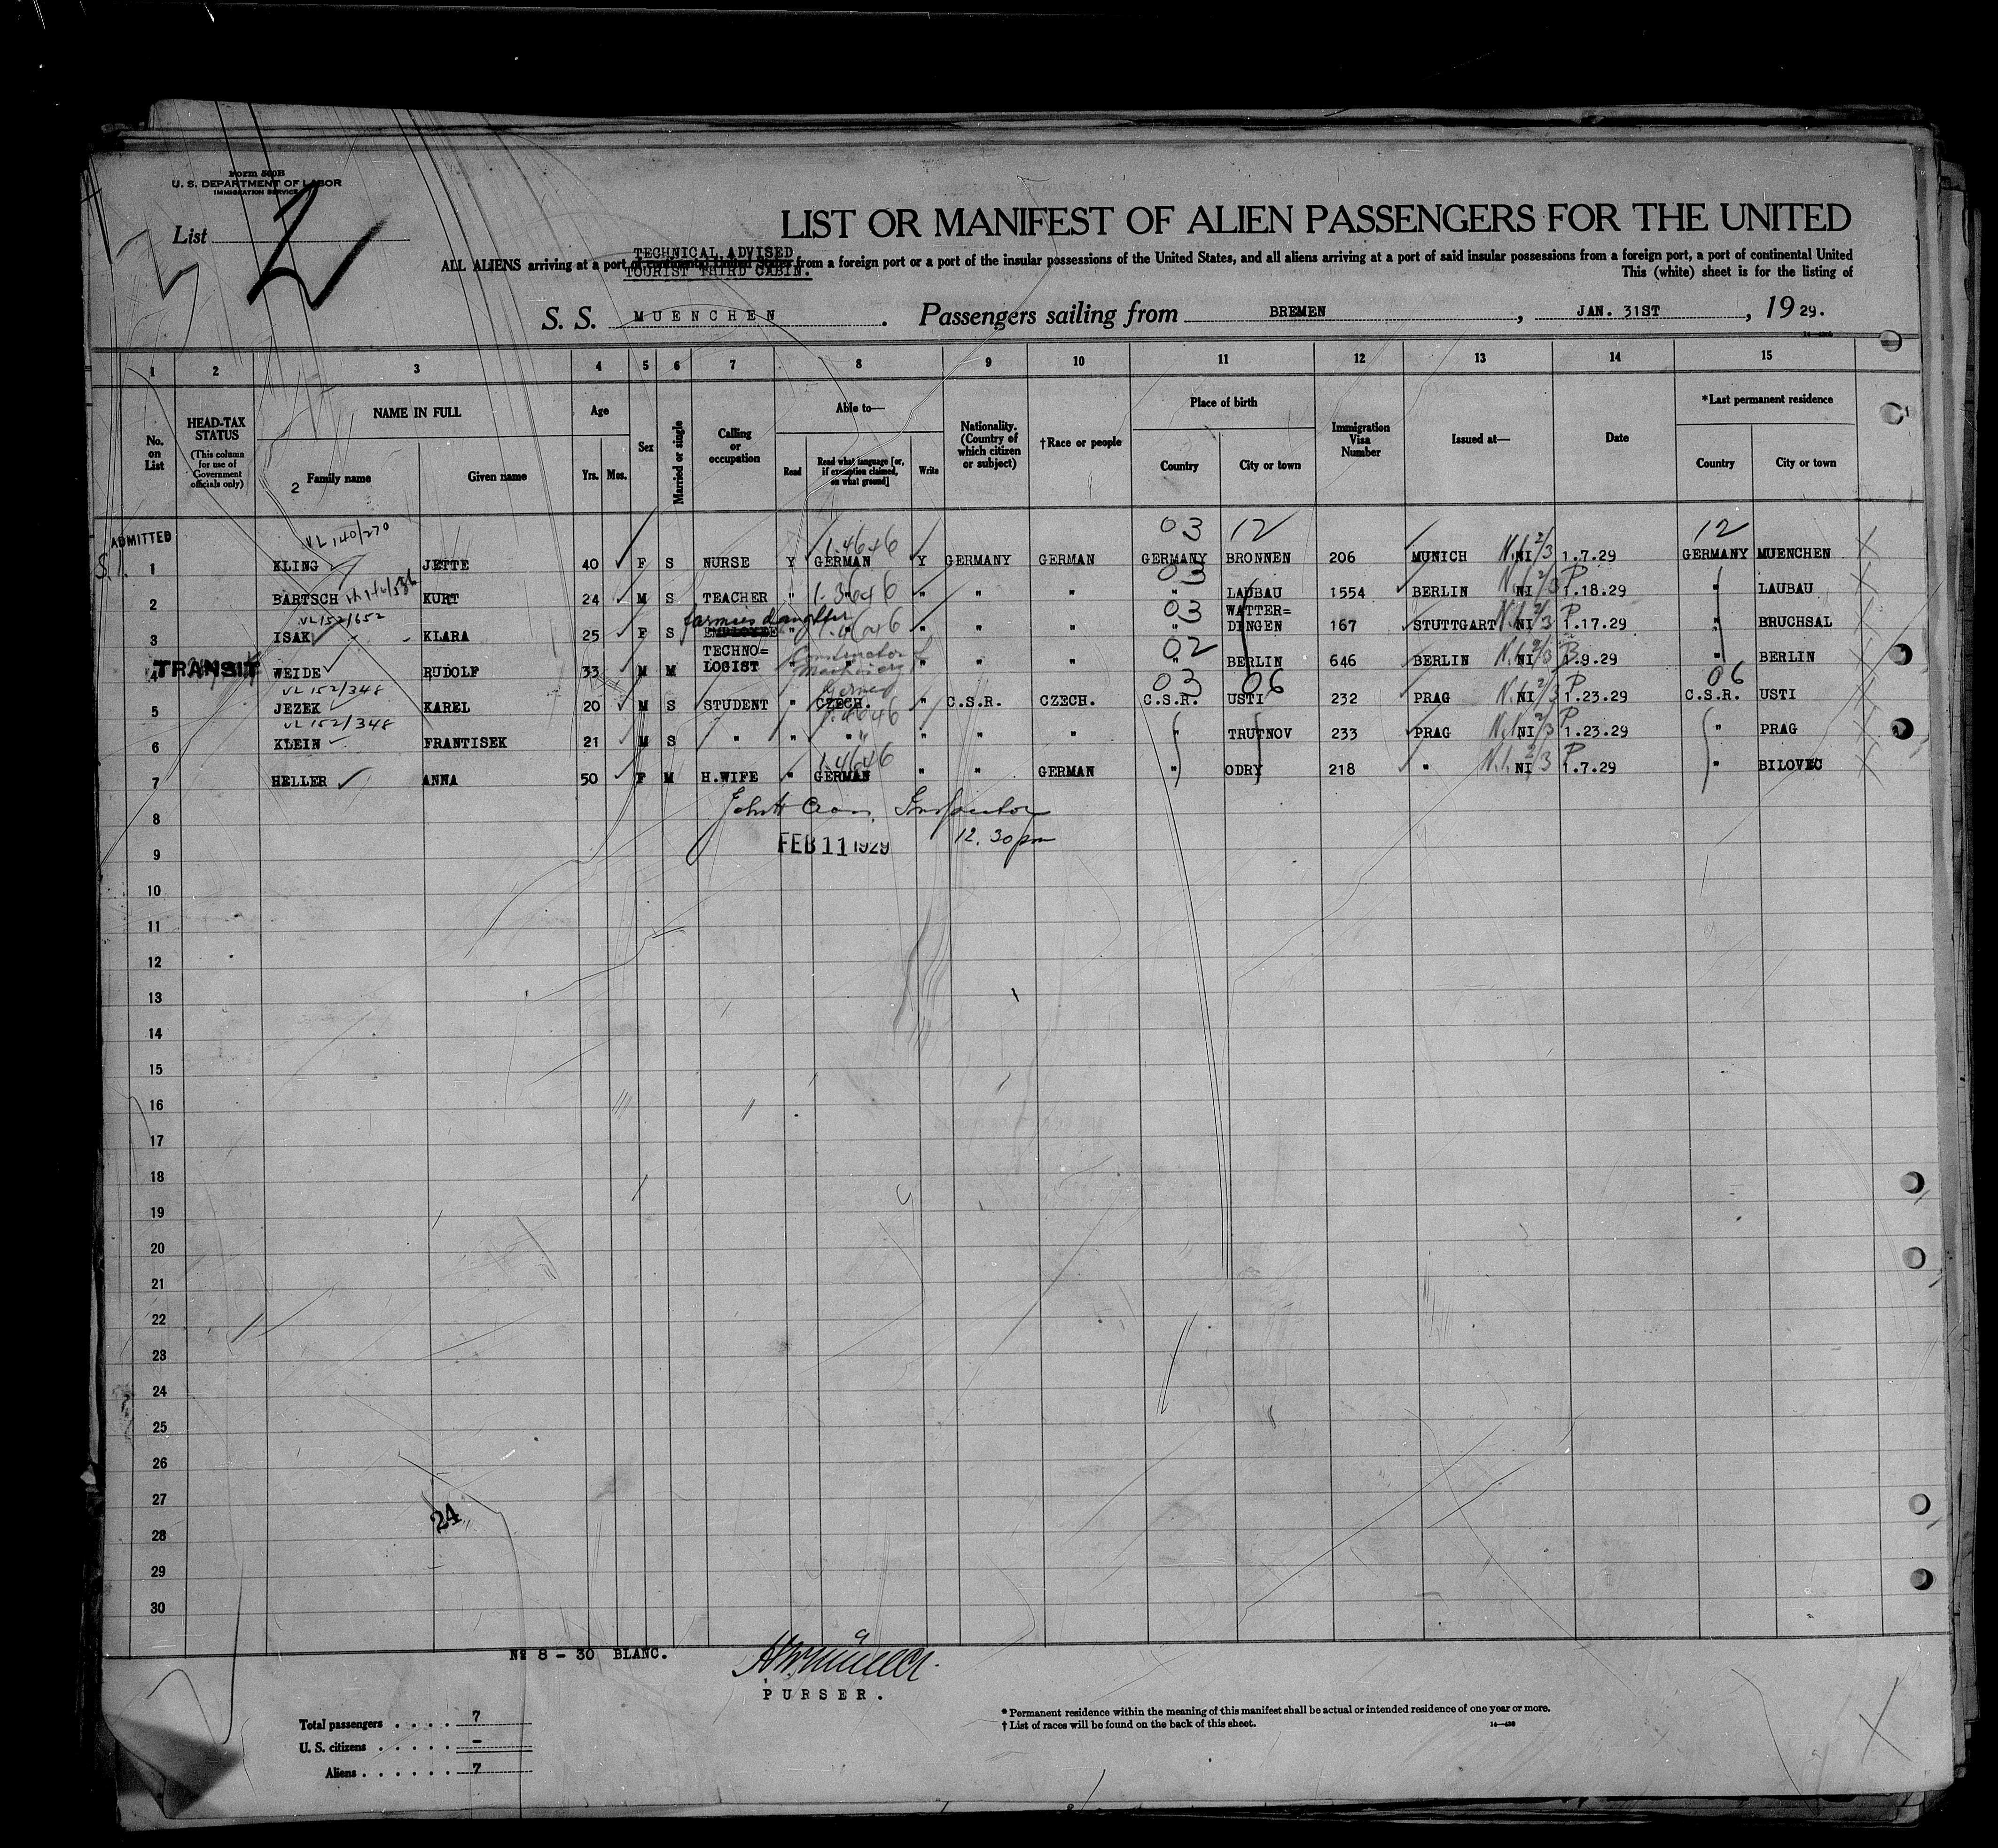 Form 500B
U. S. DEPARTMENT OF LABOR
IMMIGRATION SERVICE
List 2
LIST OR MANIFEST OF ALIEN PASSENGERS FOR THE UNITED
TECHNICAL ADVISED
ALL ALIENS arriving at a port of continental United States from a foreign port or a port of the insular possessions of the United States, and all aliens arriving at a port of said insular possessions from a foreign port, a port of continental United
TOURIST THIRD CABIN.
This (white) sheet is for the listing of
S. S. MUENCHEN. Passengers sailing from BREMEN, JAN. 31ST, 1929.
1 2 3 4 5 6 7 8 9 10 11 12 13 14 15
No. on List
HEAD-TAX STATUS (This column for use of Government officials only)
NAME IN FULL
Family name
Given name
2
Age
Yrs. Mos.
Sex
Married or single
Calling or occupation
Able to—
Read
Read what language [or, if exemption claimed, on what ground]
Write
Nationality. (Country of which citizen or subject)
†Race or people
Place of birth
Country
City or town
Immigration Visa Number
Issued at—
Date
*Last permanent residence
Country
City or town
ADMITTED VL 140/270 1.4646 03 12 12
S.I. 1 KLING JETTE 40 F S NURSE Y GERMAN Y GERMANY GERMAN GERMANY BRONNEN 206 MUNICH N.I. NI 2/3 1.7.29 GERMANY MUENCHEN
03
2 BARTSCH KURT 24 M S TEACHER " " " " " " LAUBAU 1554 BERLIN N.I. NI 2/3 P 1.18.29 " LAUBAU
VL 152/652 farmers daughter 03
3 ISAK KLARA 25 F S EMPLOYEE " " " " " " WATTER=DINGEN 167 STUTTGART N.I. NI 2/3 P 1.17.29 " BRUCHSAL
02
TRANSIT 4 WEIDE RUDOLF 33 M M TECHNO=LOGIST " " " " " BERLIN 646 BERLIN N.I. NI 2/3 1.9.29 " BERLIN
VL 152/348 03 06 06
5 JEZEK KAREL 20 M S STUDENT " CZECH. " C.S.R. CZECH. C.S.R. USTI 232 PRAG N.I. NI 2/3 P 1.23.29 C.S.R. USTI
VL 152/348 1.4646
6 KLEIN FRANTISEK 21 M S " " " " " " " TRUTNOV 233 PRAG N.I. NI 2/3 P 1.23.29 " PRAG
1.4646
7 HELLER ANNA 50 F M H.WIFE " GERMAN " " GERMAN " ODRY 218 " N.I. NI 2/3 P 1.7.29 " BILOVEC
8 Inspector
9 FEB 11 1929 12.30 pm
10
11
12
13
14
15
16
17
18
19
20
21
22
23
24
25
26
27
24
28
29
30
№ 8 - 30 BLANC.
PURSER.
Total passengers . . . . 7
U. S. citizens . . . . . -
Aliens . . . . . . 7
* Permanent residence within the meaning of this manifest shall be actual or intended residence of one year or more.
† List of races will be found on the back of this sheet.